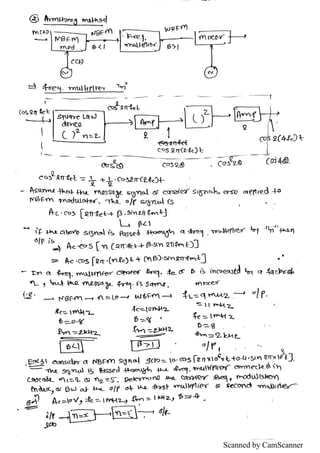 ② Armstrong method
m(t) → NBFM mod β<1 → NBFM → Freq. multiplier → WBFM β>1 → mixer →
c(t)
⇒ freq. multiplier "n"
cos²2πfct
cos 2πfct → square law device ( )² n=2 → Amp 2 → ( )² → Amp 2 → cos 2(4fc)t
cos 2π(2fc)t
cos²θ cos2θ cos²2θ cos4θ
cos²2πfct = 1/2 + 1/2 · cos2π(2fc)t
- Assume that the message signal or carrier signals are applied to NBFM modulator. The o/p signal is
Ac·cos[2πfct + β·sin2πfmt]
β<1
- if the above signal is passed through a freq. multiplier by "n" then
o/p is
→ Ac·cos[n(2πfct + β·sin2πfmt)]
⇒ Ac·cos[2π·(nfc)t + (nβ)·sin2πfmt]
- In a freq. multiplier carrier freq. fc & β is increased by a factor
n, but the message freq. is same.
i.e. → NBFM → n=10 → WBFM → mixer → o/p.
fL=9MHz
fc=1MHz
β=0.8
fm=2kHz
β<1
fc=10MHz
β=8
fm=2kHz
β>1
=11MHz
fc=1MHz
β=8
fm=2kHz
o/p,
Ex(5) consider a NBFM signal s(t)=10·cos[2π×10⁶t+0.4·sin2π×10³t]
The signal is passed through the freq. multiplier connected in
cascade n1=2 & n2=5. Determine the carrier freq, modulation
index, & BW at the o/p of the first multiplier & second multiplier
Sol) Ac=10V, fc=1MHz, fm=1kHz, β=0.4.
i/p s(t) → n=2 → n=5 → o/p.
Scanned by CamScanner